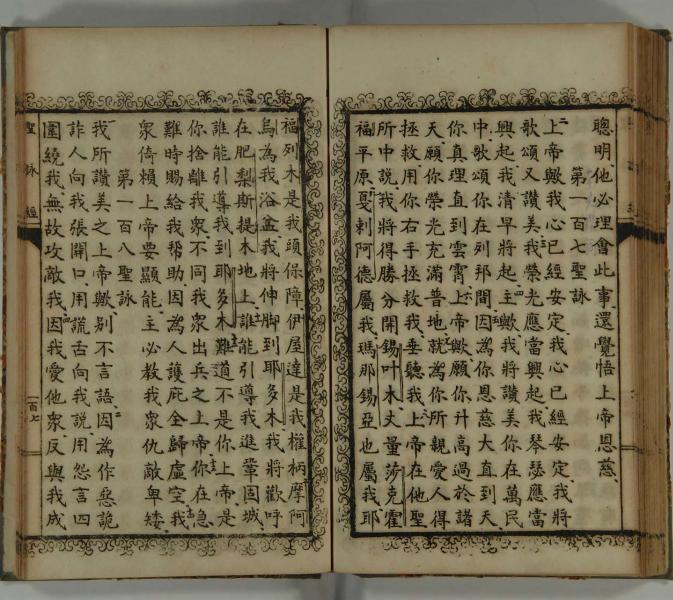 聰明他必理會此事還覺悟上帝恩慈
第一百七聖詠
上帝歟我心已經安定我心已經安定我將
歌頌又讚美我榮光應當興起我琴瑟應當
興起我清早將起主歟我將讚美你在萬民
中歌頌你在列邦間因為你恩慈大直到天
你真理直到雲霄上帝歟願你升高過於諸
天願你榮光充滿普地就為你所親愛人得
拯救用你右手拯救我垂聽我上帝在他聖
所中說我將得勝分開錫叶木丈量莎克霍
福平原戛剌阿德屬我瑪那錫亞也屬我耶
福列木是我頭保障伊屋達是我權柄摩阿
烏為我浴盆我將伸脚到耶多木我將歡呼
在肥梨斯提木地上誰能引導我進鞏固城
誰能引導我到耶多木難道不是你上帝是
你捨離我衆不同我衆出兵之上帝你在急
難時賜給我帮助因為人護庇全歸虛空我
衆倚賴上帝要顯能主必教我衆仇敵卑矮
第一百八聖詠
我所讚美之上帝歟别不言語因為作惡詭
詐人向我張開口用謊舌向我說用怨言四
圍繞我無故攻敵我因我愛他衆反與我成
聖詠經
一百七